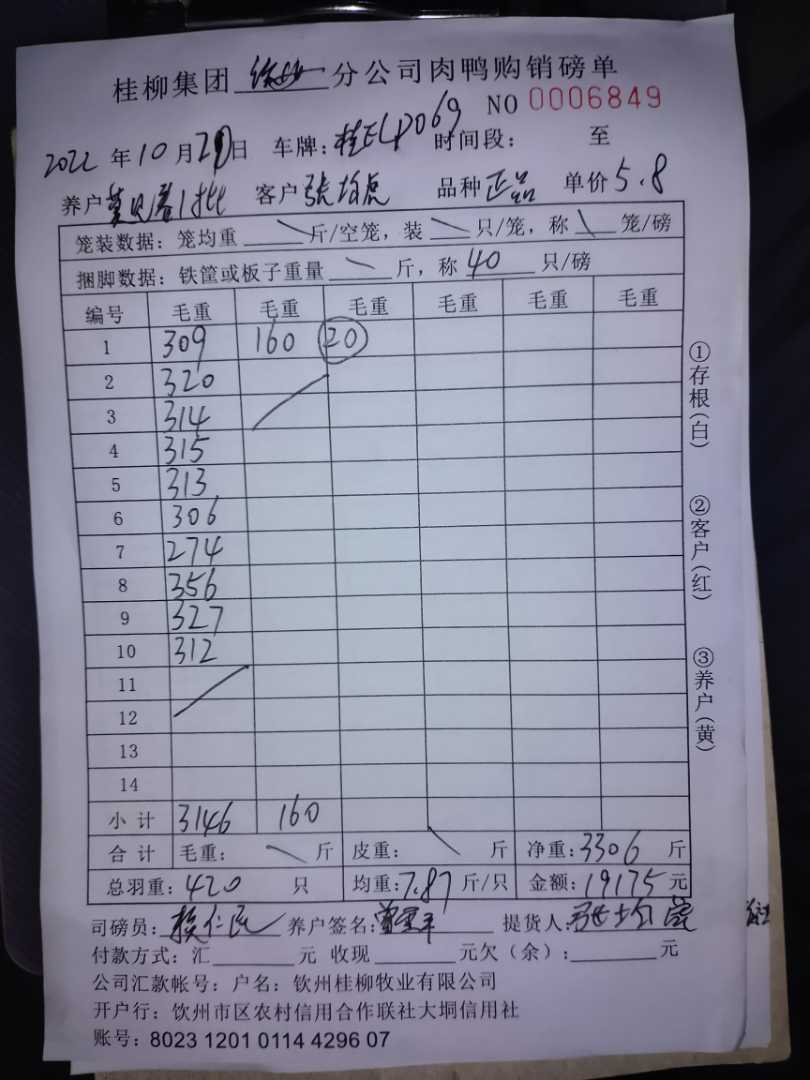 桂柳集团 钦州 分公司肉鸭购销磅单
NO 0006849
2022 年 10 月 29 日 车牌: 时间段: 至
养户 客户 张均虎 品种 正品 单价 5.8
笼装数据: 笼均重 \ 斤/空笼, 装 \ 只/笼, 称 \ 笼/磅
捆脚数据: 铁筐或板子重量 \ 斤, 称 40 只/磅
编号 毛重 毛重 毛重 毛重 毛重 毛重
1 309 160 20
2 320
3 314
4 315
5 313
6 306
7 274
8 356
9 327
10 312
11
12
13
14
小计 3146 160
合计 毛重: \ 斤 皮重: \ 斤 净重: 3306 斤
总羽重: 420 只 均重: 7.87 斤/只 金额: 19175 元
司磅员: 养户签名: 提货人:
付款方式: 汇 元 收现 元欠(余): 元
公司汇款帐号: 户名: 钦州桂柳牧业有限公司
开户行: 钦州市区农村信用合作联社大垌信用社
账号: 8023 1201 0114 4296 07
①存根(白)
②客户(红)
③养户(黄)